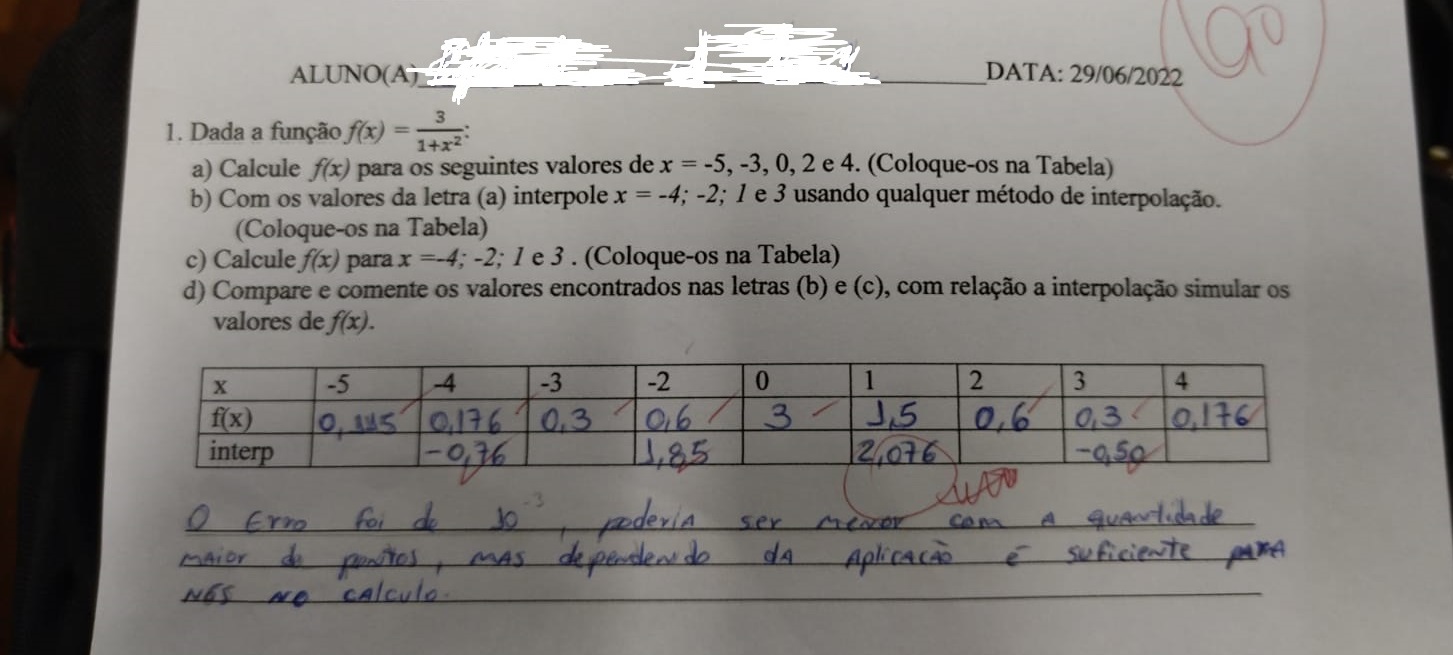 90
ALUNO(A) DATA: 29/06/2022
1. Dada a função f(x) = 3/(1+x²):
a) Calcule f(x) para os seguintes valores de x = -5, -3, 0, 2 e 4. (Coloque-os na Tabela)
b) Com os valores da letra (a) interpole x = -4; -2; 1 e 3 usando qualquer método de interpolação.
(Coloque-os na Tabela)
c) Calcule f(x) para x =-4; -2; 1 e 3 . (Coloque-os na Tabela)
d) Compare e comente os valores encontrados nas letras (b) e (c), com relação a interpolação simular os
valores de f(x).
x -5 -4 -3 -2 0 1 2 3 4
f(x) 0,115 0,176 0,3 0,6 3 1,5 0,6 0,3 0,176
interp -0,76 1,85 2,076 -0,50
O Erro foi de 10⁻³, poderia ser menor com A quantidade
maior de pontos, mas dependendo da Aplicação é suficiente para
nós no calculo.